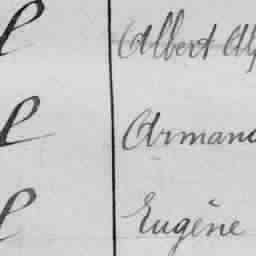 e Albert Alp
e Armand
e Eugène